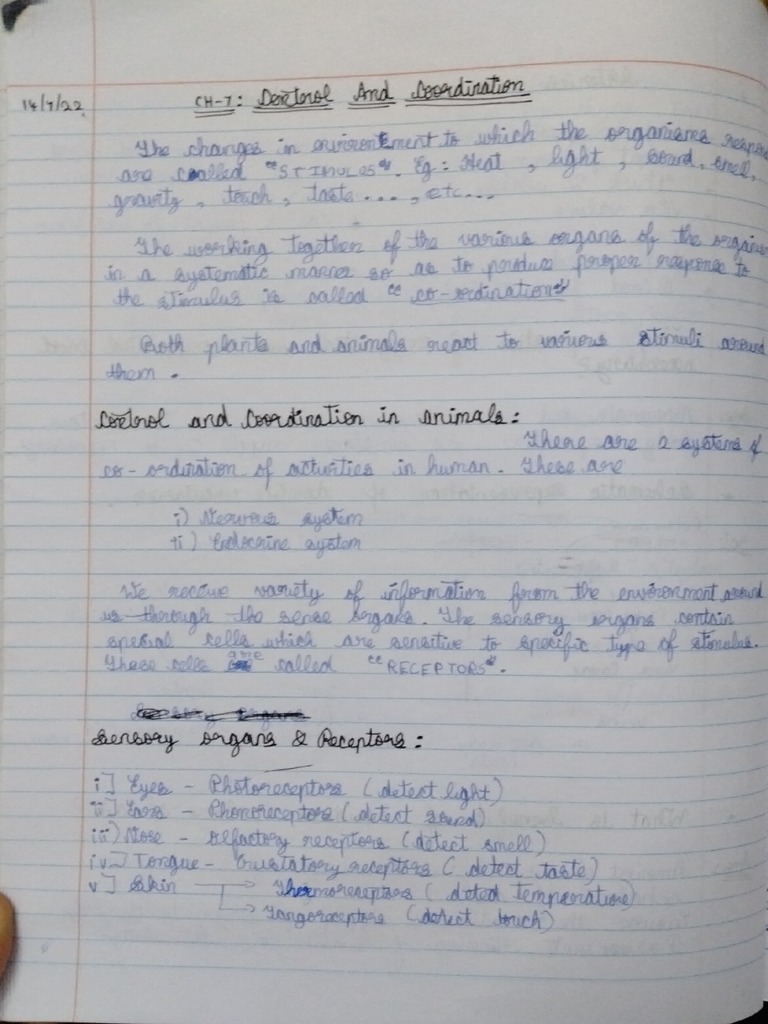 14/7/22
CH-7: Control And Coordination
The changes in environment to which the organisms respon
are called "STIMULUS". Eg: Heat, light, sound, smell,
gravity, touch, taste ..., etc...
The working together of the various organs of the organism
in a systematic manner so as to produce proper response to
the stimulus is called "co-ordination"
Both plants and animals react to various stimuli around
them.
Control and Coordination in animals:
There are 2 systems of
co-ordination of activities in human. These are
i) Nervous system
ii) Endocrine system
We receive variety of information from the environment around
us through the sense organs. The sensory organs contain
special cells which are sensitive to specific type of stimulus.
These cells are called "RECEPTORS".
Sensory organs & Receptors:
i] Eyes - Photoreceptors (detect light)
ii] Ears - Phonoreceptors (detect sound)
iii) Nose - olfactory receptors (detect smell)
iv] Tongue - Gustatory receptors (detect taste)
v] Skin → Thermoreceptors (detect temperature)
→ Tangoreceptors (detect touch)